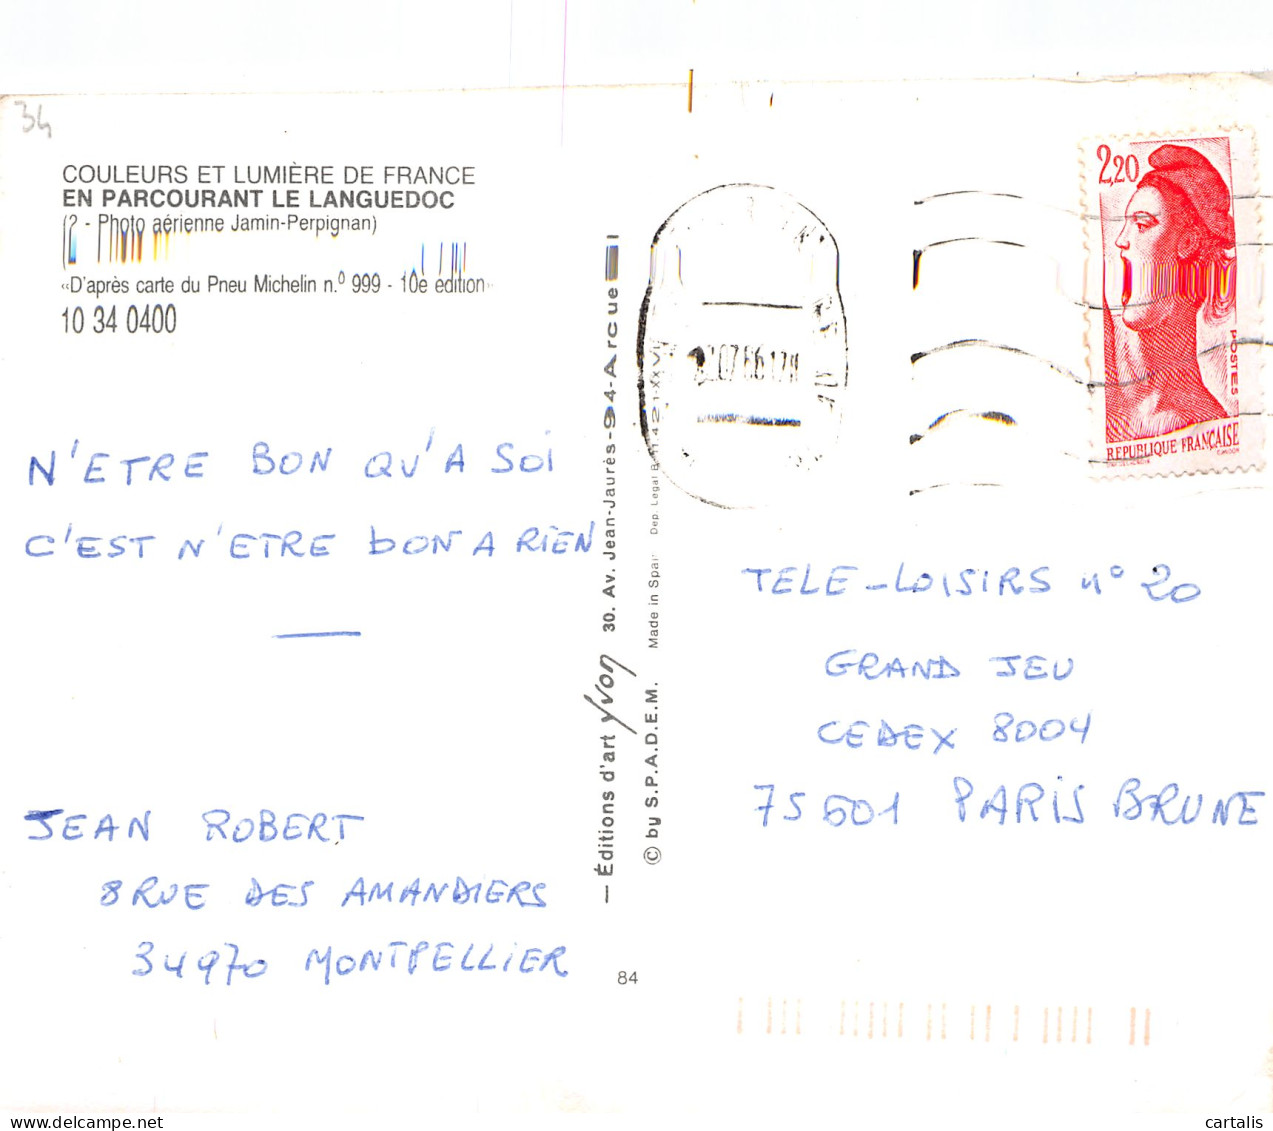 34
COULEURS ET LUMIÈRE DE FRANCE
EN PARCOURANT LE LANGUEDOC
(2 - Photo aérienne Jamin-Perpignan)
«D'après carte du Pneu Michelin n.º 999 - 10e édition»
10 34 0400
N'ETRE BON QU'A SOI
C'EST N'ETRE bON A RIEN
JEAN ROBERT
8 RUE DES AMANDIERS
34970 MONTPELLIER
— Éditions d'art Yvon 30. Av. Jean-Jaurès-94-Arcueil
© by S.P.A.D.E.M. Made in Spain Dep. Legal B.
84
2,20
POSTES
REPUBLIQUE FRANÇAISE
TELE-LOISIRS n° 20
GRAND JEU
CEDEX 8004
75601 PARIS BRUNE
cartalis.com